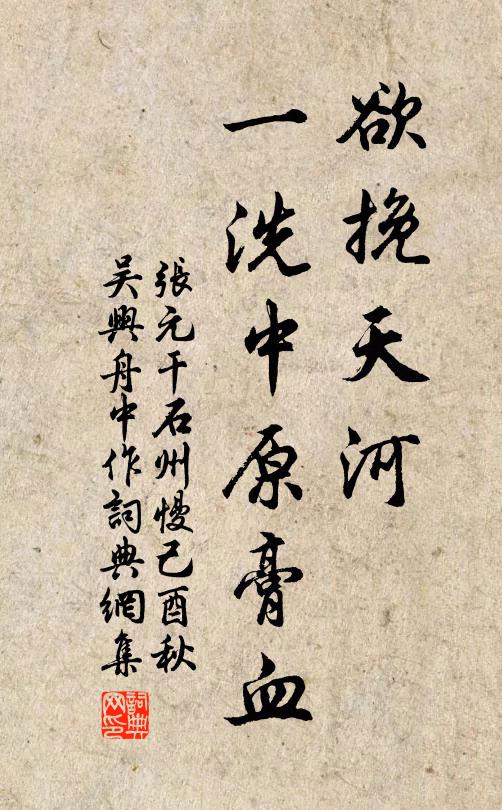 欲挽天河
一洗中原膏血
張元干石州慢己酉秋
吳興舟中作詞典網集
詞典
网印